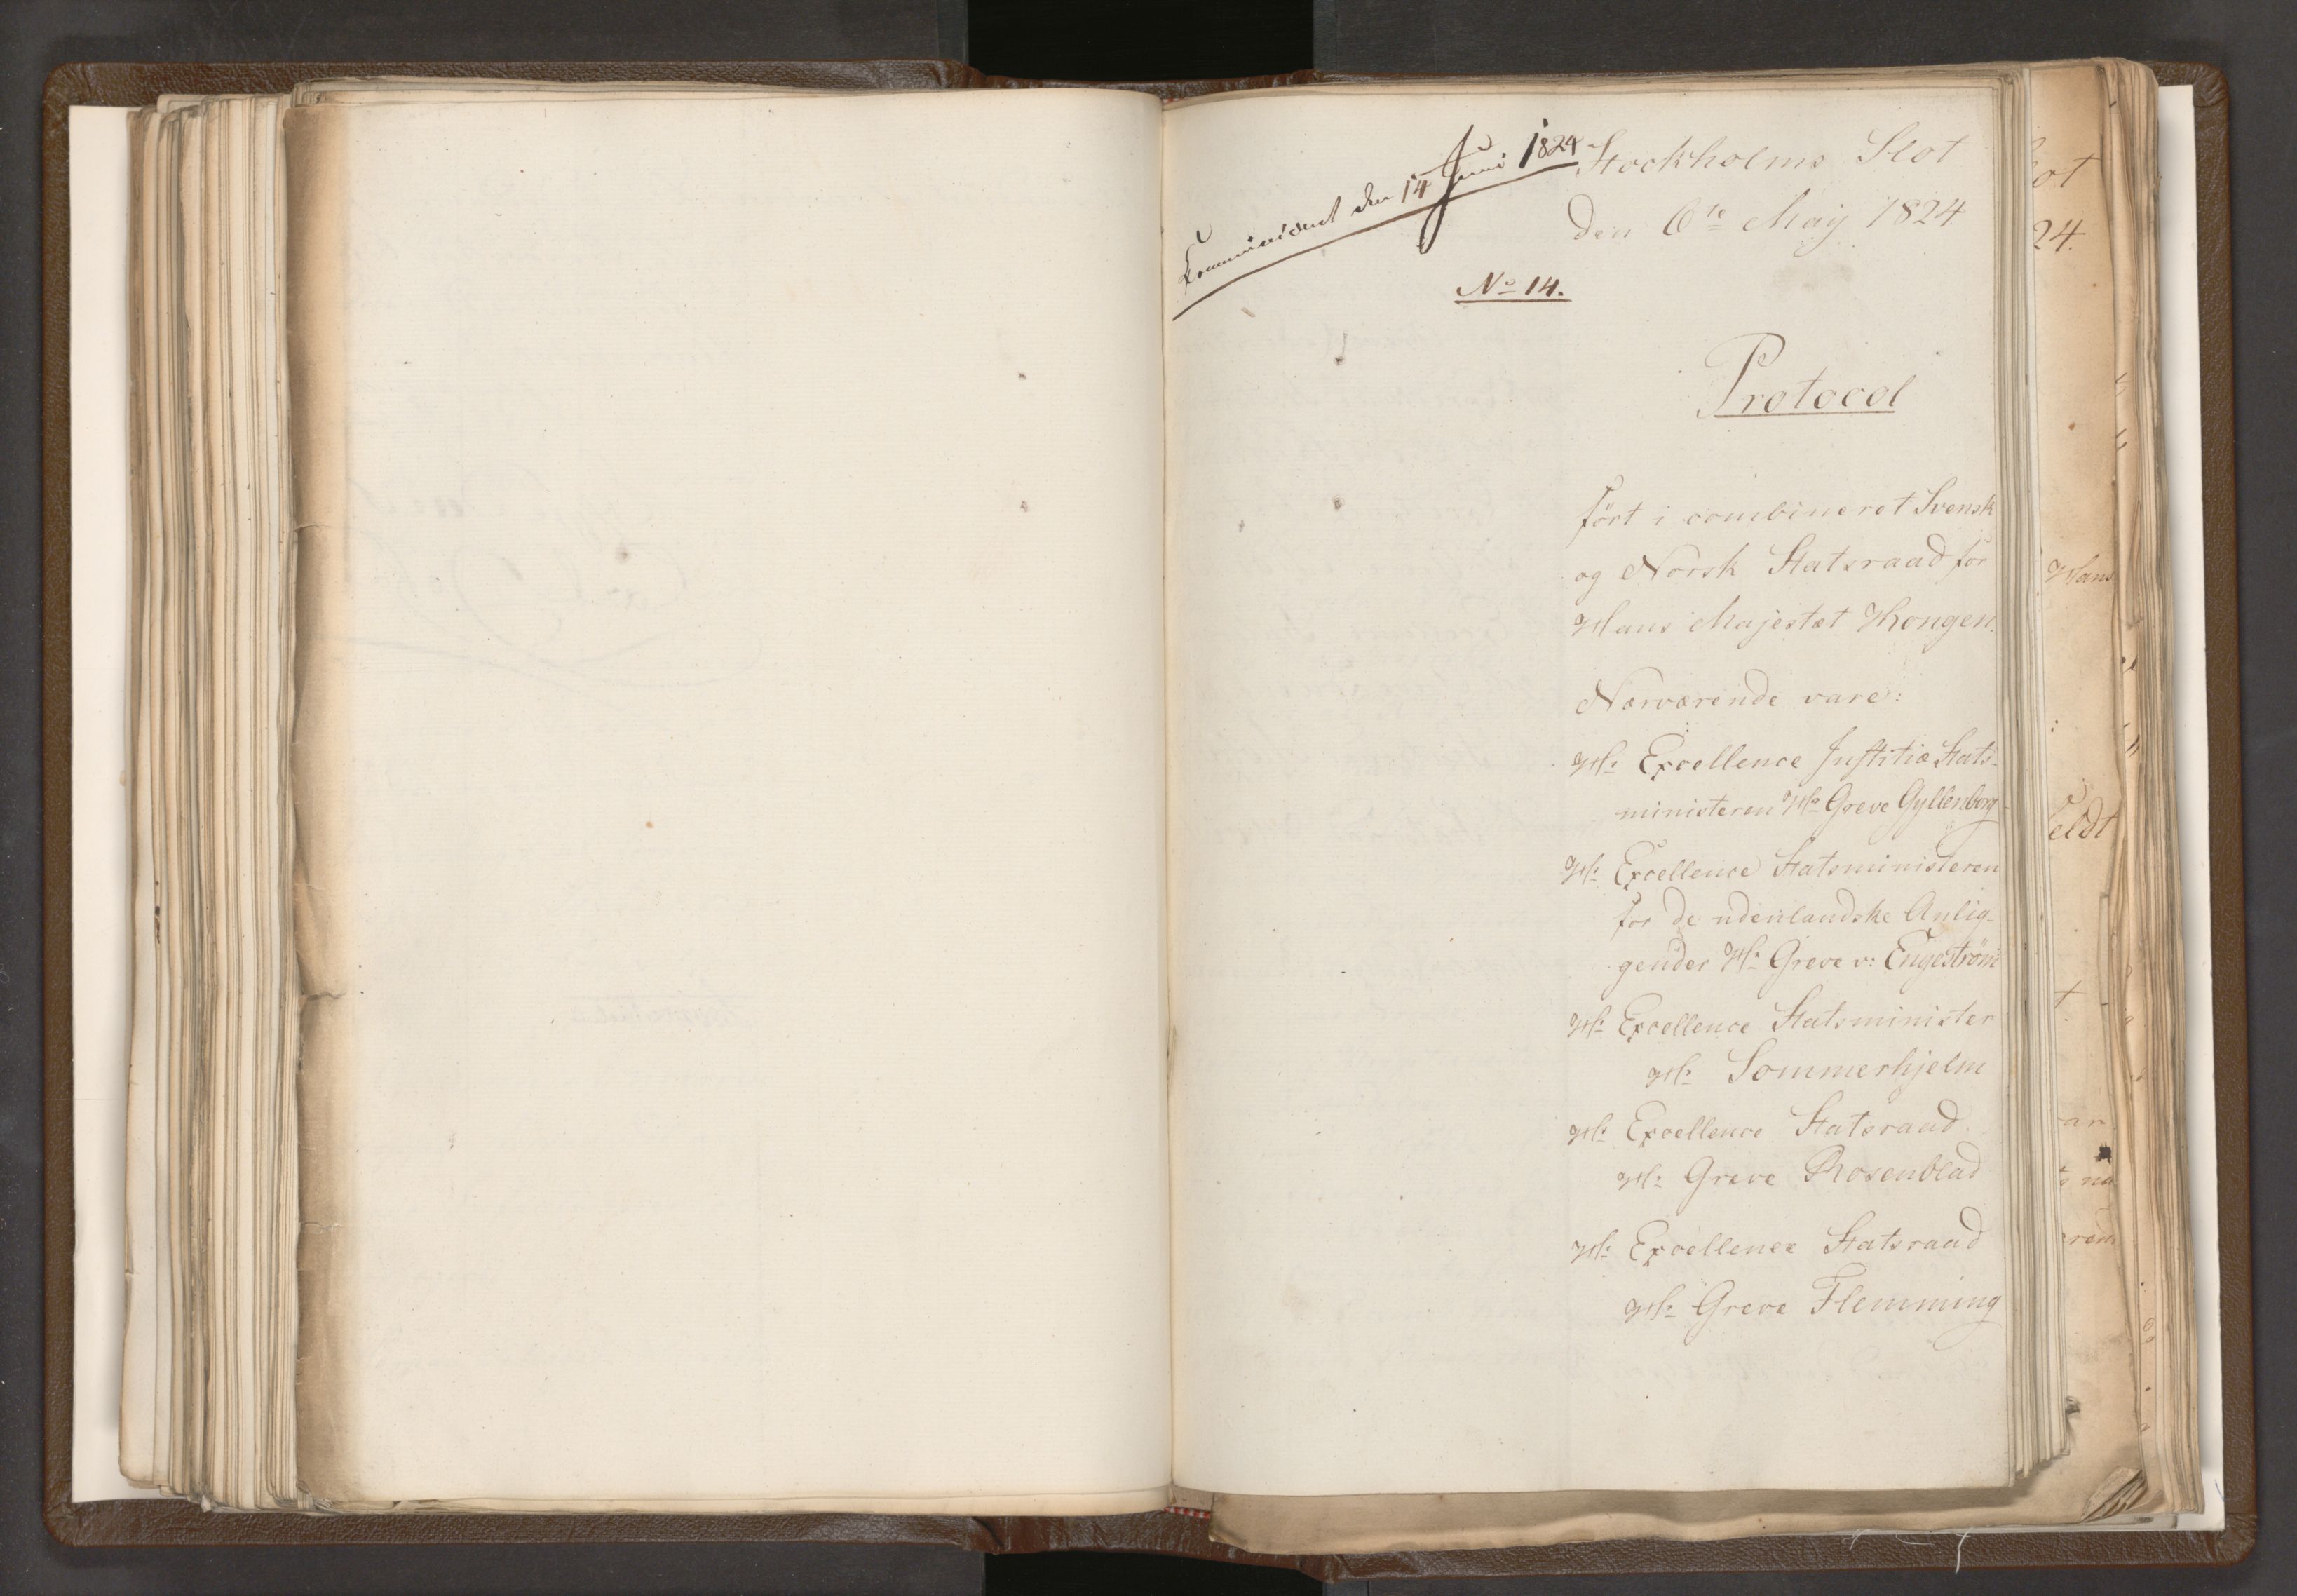 Communiceret den 14 Juni 1824
Stockholms Slot
den 6te Maij 1824.
No 14.
Protocol
fört i combineret Svensk
og Norsk Statsraad for
Hans Majestæt Kongen.
Nærværende vare:
Hs Excellence Justitiæ Stats-
ministeren Hr Greve Gyllenborg
Hs Excellence Statsministeren
for de udenlandske Anlig-
gender Hr Greve v: Engeström
Hs Excellence Statsminister
Hr Sommerhjelm
Hs Excellence Statsraad
Hr Greve Rosenblad
Hs Excellence Statsraad
Hr Greve Flemming